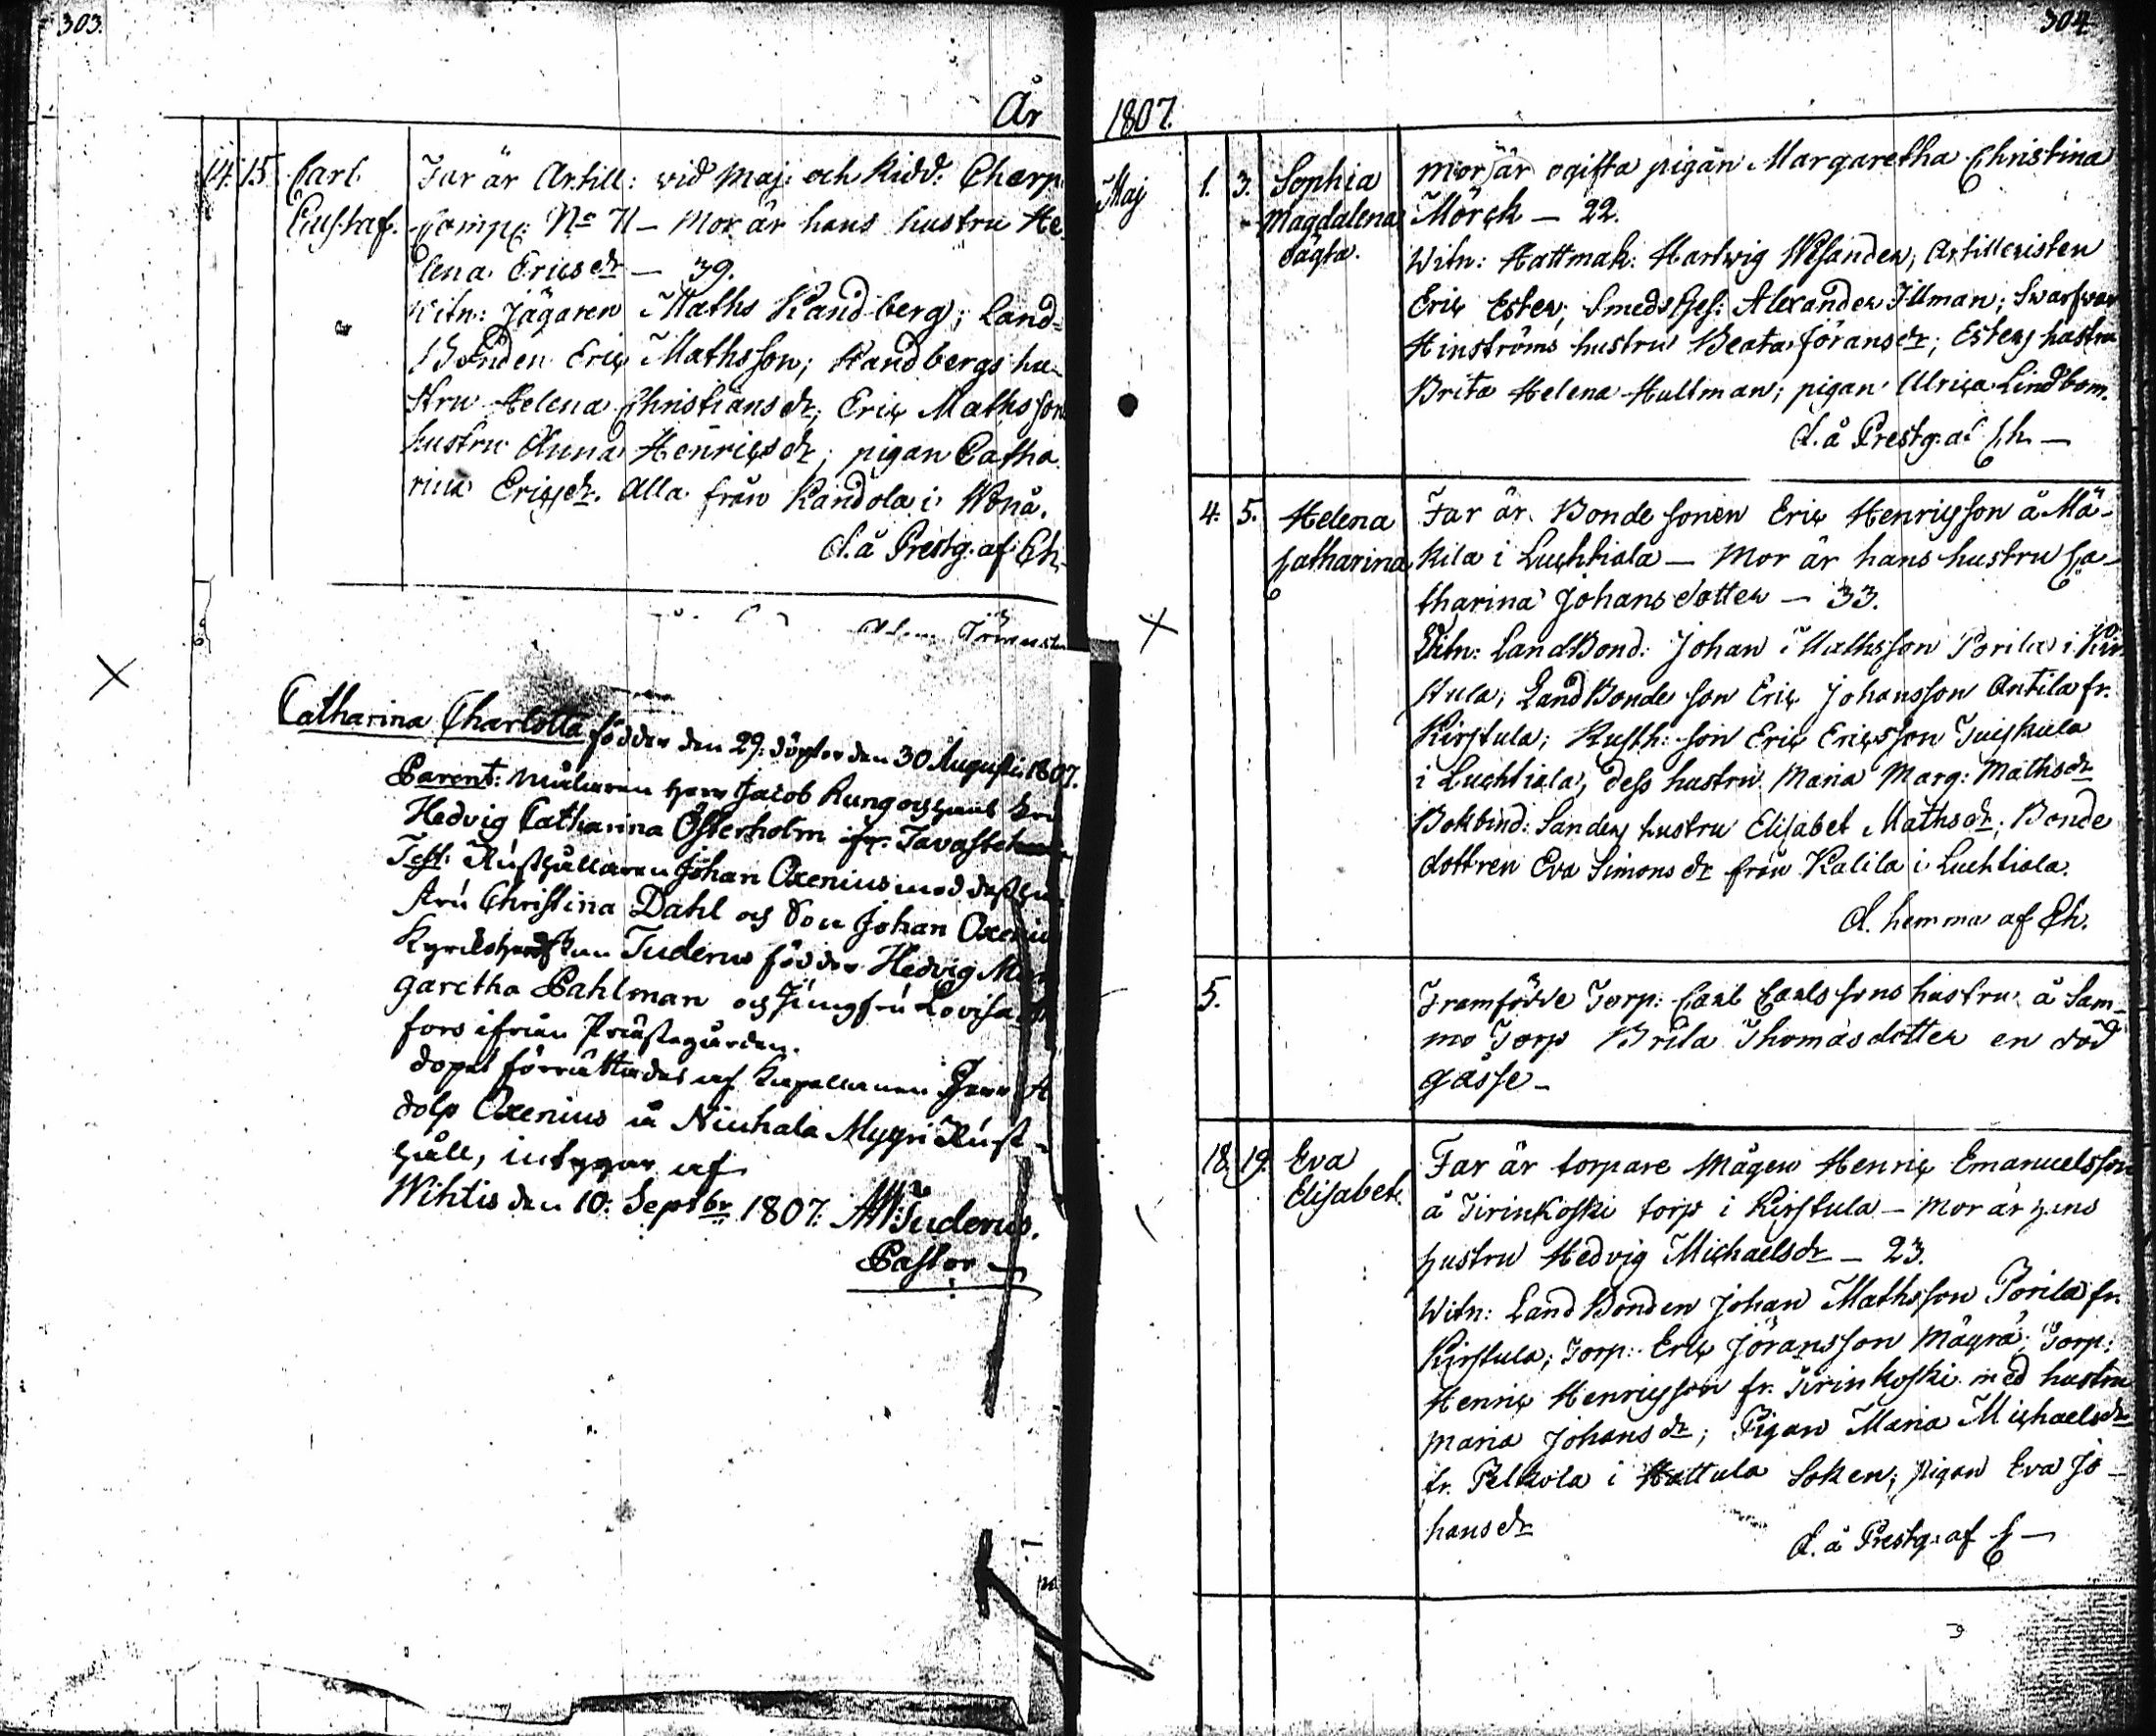 303.
År
14. 15. Carl Far är Artill: vid Maj: och Ridd: Charp
Gustaf. Comp: No 71 - Mor är hans hustru He-
lena Ericsdr - 39.
Witn: Jägaren Maths Kandberg; Land-
Bonden Eric Mathsson; Kandbergs hu-
stru Helena Christiansdr; Eric Mathssons
hustru Anna Henricsdr; pigan Catha
rina Ericsdr. Alla från Kandola i Wånå.
d. å Prestg. af Ch.
Catharina Charlotta födder den 29. döpter den 30 Augusti 1807.
Parent: Målaren Herr Jacob Rung och hans Fru
Hedvig Catharina Österholm ifr. Tavastehus
Test: Rusthållaren Johan Oxenius med dess hu
stru Christina Dahl och Son Johan Oxenius
Kyrkoherdskan Tuderus födder Hedvig Mar
garetha Pahlman och Jungfru Lovisa
fors ifrån Prästegården.
Dopet förrättades af Kapellanen Herr A
dolp Oxenius å Niuhala Myyri Rust-
håll, intygar af
Wihtis den 10. Septbr 1807. Tuderus.
Pastor
304
1807.
Maj 1. 3. Sophia Mor är ogifta pigan Margaretha Christina
Magdalena Mörck - 22.
oägta. Witn: Hattmak: Hartwig Wisander; Artilleristen
Eric Ester; Smeds Ges: Alexander Illman; Swarfvar
Hinströms hustru Beata Jöransdr; Esters hustru
Brita Helena Hultman; pigan Ulrica Lindbom.
d. å Prestg. af Ch. -
4. 5. Helena Far är Bonde sonen Eric Henricsson å Mä-
Catharina kila i Luchtiala - Mor är hans hustru Ca-
tharina Johansdotter - 33.
Witn: LandBond: Johan Mathsson Porila i Kir
stula; LandBonde son Eric Johansson Antila fr.
Kirstula; Rusth: son Eric Ericsson Tuiskula
i Luchtiala, dess hustru Maria Marg: Mathsdr
Bokbind: Sanders hustru Elisabet Mathsdr; Bonde
dottren Eva Simonsdr från Kalila i Luchtiala.
d. hemma af Ch.
5. Framfödde Torp: Carl Carlssons hustru å Sam-
mo Torp Brita Thomasdotter en död
gåsse -
18. 19. Eva Far är torpare Mågen Henric Emanuelsson
Elisabet. å Tirinkoski torp i Kirstula - Mor är hans
hustru Hedvig Michaelsdr - 23.
Witn: LandBonden Johan Mathsson Porila fr.
Kirstula; Torp: Eric Jöransson Mäyrä; Torp:
Henric Henricsson fr. Tirinkoski med hustru
Maria Johansdr; Pigan Maria Michaelsdr
fr. Pelkola i Hattula Soken; pigan Eva Jo-
hansdr
d. å Prestg. af C -